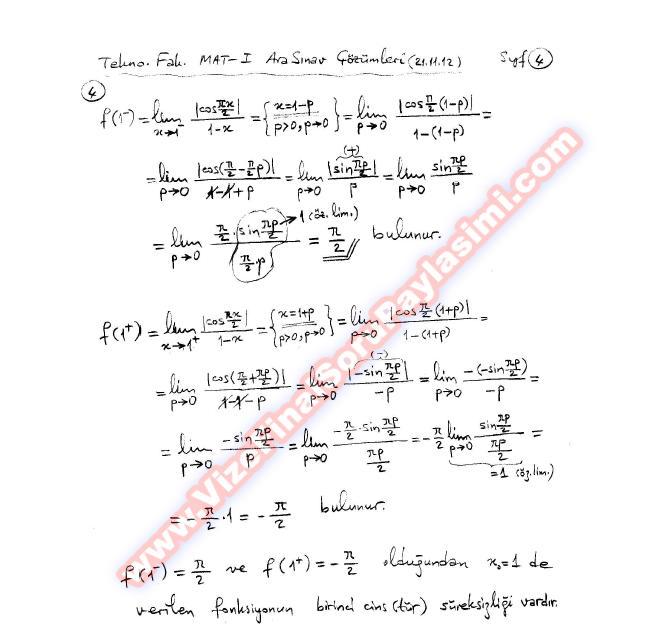 Tekno. Fak. MAT-I Ara Sınav Çözümleri (21.11.12) Syf 4
4
f(1⁻) = lim_{x→1⁻} |cos πx/2| / (1-x) = { x=1-p / p>0, p→0 } = lim_{p→0} |cos π/2 (1-p)| / (1-(1-p)) =
= lim_{p→0} |cos(π/2 - π/2 p)| / (1-1+p) = lim_{p→0} |sin πp/2| (+) / p = lim_{p→0} sin πp/2 / p
= lim_{p→0} π/2 · sin πp/2 / (π/2 · p) → 1 (öz. lim.) = π/2 bulunur.
f(1⁺) = lim_{x→1⁺} |cos πx/2| / (1-x) = { x=1+p / p>0, p→0 } = lim_{p→0} |cos π/2 (1+p)| / (1-(1+p)) =
= lim_{p→0} |cos(π/2 + πp/2)| / (1-1-p) = lim_{p→0} |-sin πp/2| (-) / -p = lim_{p→0} -(-sin πp/2) / -p =
= lim_{p→0} -sin πp/2 / p = lim_{p→0} -π/2 · sin πp/2 / (πp/2) = -π/2 lim_{p→0} sin πp/2 / (πp/2) =
=1 (öz. lim.)
= -π/2 · 1 = -π/2 bulunur.
f(1⁻) = π/2 ve f(1⁺) = -π/2 olduğundan x₀=1 de
verilen fonksiyonun birinci cins (tür) süreksizliği vardır.
www.VizeFinalSoruPaylasimi.com